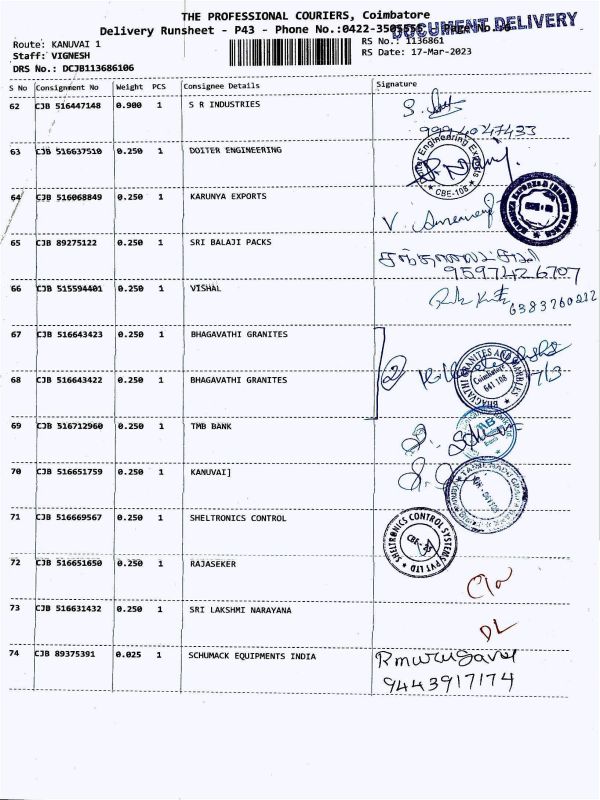 THE PROFESSIONAL COURIERS, Coimbatore
Delivery Runsheet - P43 - Phone No.:0422-3505555 Page No.
DOCUMENT DELIVERY
Route: KANUVAI 1 RS No.: 1136861
Staff: VIGNESH RS Date: 17-Mar-2023
DRS No.: DCJB113686106
S No Consignment No Weight PCS Consignee Details Signature
62 CJB 516447148 0.900 1 S R INDUSTRIES
9994047433
63 CJB 516637510 0.250 1 DOITER ENGINEERING
Doiter Engineering Exports
CBE-108
64 CJB 516068849 0.250 1 KARUNYA EXPORTS
65 CJB 89275122 0.250 1 SRI BALAJI PACKS
9597426707
66 CJB 515594401 0.250 1 VISHAL
6383760212
67 CJB 516643423 0.250 1 BHAGAVATHI GRANITES
68 CJB 516643422 0.250 1 BHAGAVATHI GRANITES
2
BHAGVATHI GRANITES AND MARBLES
Coimbatore
641 108
69 CJB 516712960 0.250 1 TMB BANK
70 CJB 516651759 0.250 1 KANUVAI]
71 CJB 516669567 0.250 1 SHELTRONICS CONTROL
SHELTRONICS CONTROL SYSTEMS PVT LTD
72 CJB 516651650 0.250 1 RAJASEKER
73 CJB 516631432 0.250 1 SRI LAKSHMI NARAYANA
DL
74 CJB 89375391 0.025 1 SCHUMACK EQUIPMENTS INDIA
R murugavel
9443917174